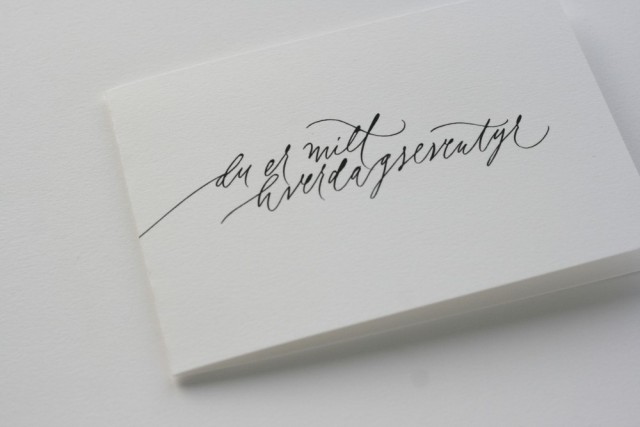 du er mitt
hverdagseventyr